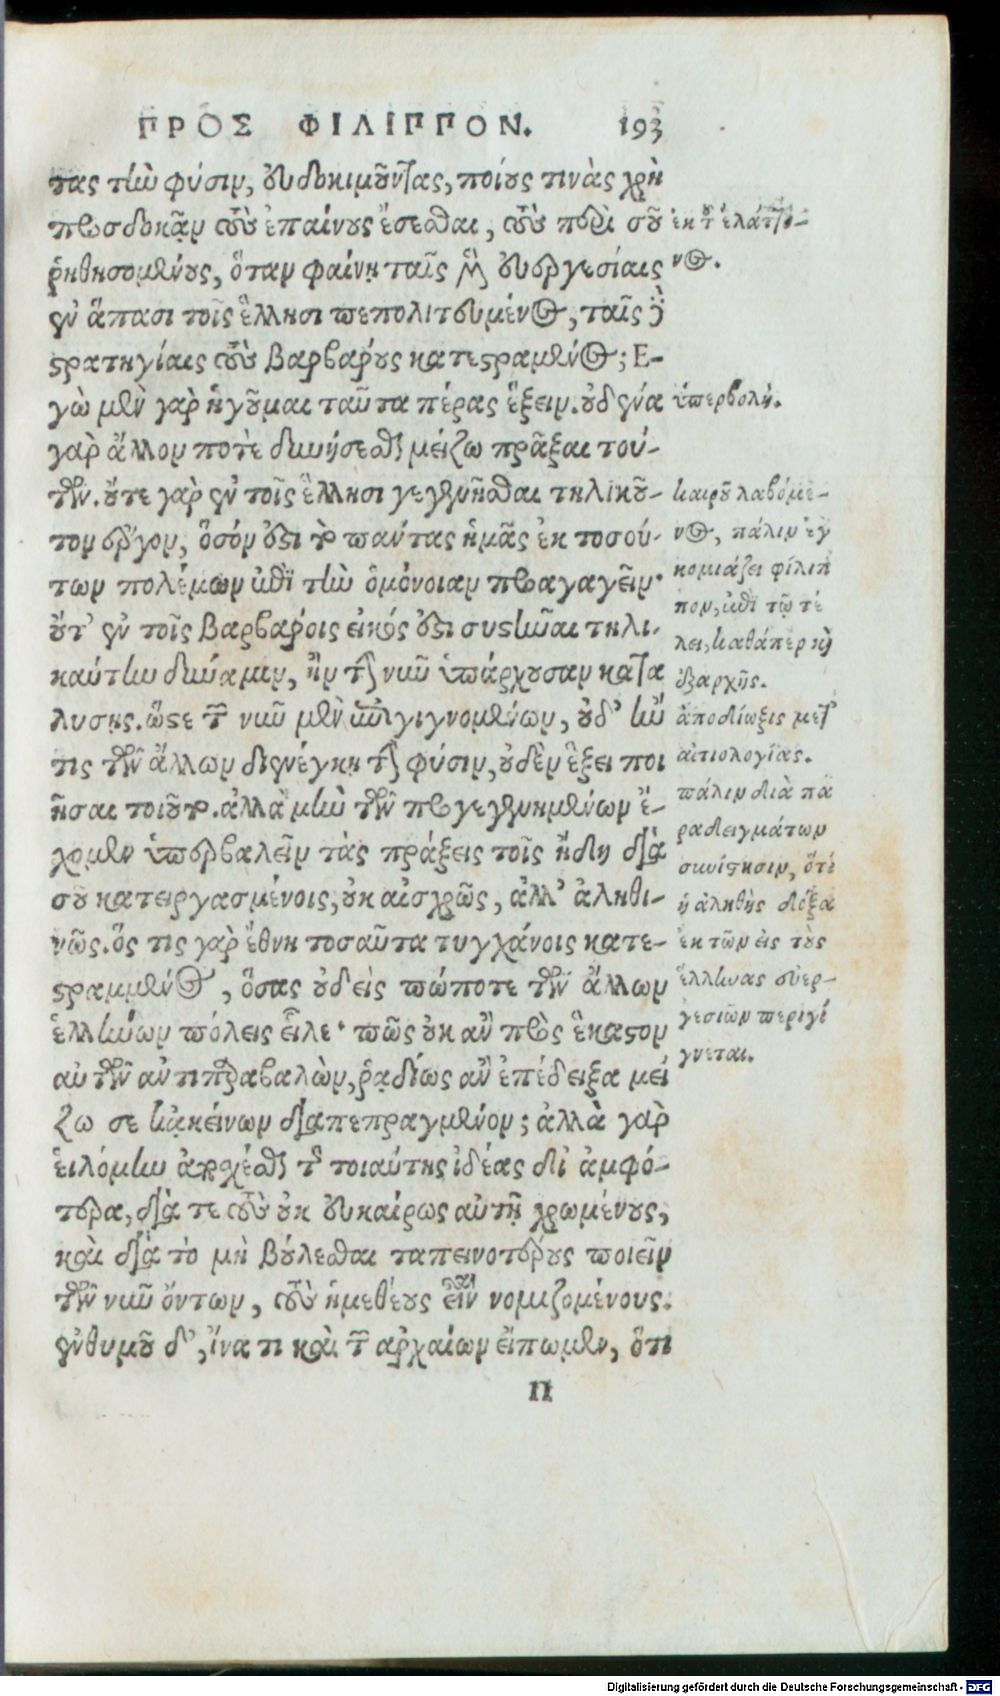 ΠΡΟΣ ΦΙΛΙΠΠΟΝ. 193
τας τὴν φύσιν, εὐδοκιμοῦντας, ποίους τινὰς χρὴ
προσδοκᾷν τοὺς ἐπαίνους ἔσεσθαι, τοὺς περὶ σοῦ
ῥηθησομένους, ὅταν φαίνῃ ταῖς μὲν εὐεργεσίαις
ἐν ἅπασι τοῖς ἕλλησι πεπολιτευμένος, ταῖς δὲ
στρατηγίαις τοὺς βαρβάρους κατεστραμμένος; Ε-
γὼ μὲν γὰρ ἡγοῦμαι ταῦτα πέρας ἕξειν. οὐδένα
γὰρ ἄλλον ποτὲ δυνήσεσθαι μείζω πρᾶξαι τού-
των. οὔτε γὰρ ἐν τοῖς ἕλλησι γεγενῆσθαι τηλικοῦ-
τον ἔργον, ὅσόν ἐστι τὸ πάντας ἡμᾶς ἐκ τοσού-
των πολέμων ἐπὶ τὴν ὁμόνοιαν προαγαγεῖν.
οὔτ' ἐν τοῖς βαρβάροις εἰκός ἐστι συστῆναι τηλι-
καύτην δύναμιν, ἢν τὴν νῦν ὑπάρχουσαν κατα
λύσῃς. ὥστε τῶν νῦν μὲν ἐπιγιγνομένων, οὐδ' ἤν
τις τῶν ἄλλων διενέγκῃ τὴν φύσιν, οὐδὲν ἕξει ποι
ῆσαι τοιοῦτο. ἀλλὰ μὴν τῶν προγεγενημένων ἔ-
χομεν ὑπερβαλεῖν τὰς πράξεις τοῖς ἤδη διὰ
σοῦ κατειργασμένοις, οὐκ αἰσχρῶς, ἀλλ' ἀληθι-
νῶς. ὅς τις γὰρ ἔθνη τοσαῦτα τυγχάνοις κατε-
στραμμένος, ὅσας οὐδεὶς πώποτε τῶν ἄλλων
ἑλλήνων πόλεις εἷλε· πῶς οὐκ ἂν πρὸς ἕκαστον
αὐτῶν ἀντιπαραβαλὼν, ῥᾳδίως ἂν ἐπέδειξα μεί
ζω σε κἀκείνων διαπεπραγμένον; ἀλλὰ γὰρ
εἱλόμην ἀπέχεσθαι τῆς τοιαύτης ἰδέας δι' ἀμφό-
τερα, διά τε τοὺς οὐκ εὐκαίρως αὐτῇ χρωμένους,
καὶ διὰ τὸ μὴ βούλεσθαι ταπεινοτέρους ποιεῖν
τῶν νῦν ὄντων, τοὺς ἡμιθέους εἶναι νομιζομένους.
ἐνθυμοῦ δ', ἵνα τι καὶ τῶν ἀρχαίων εἴπωμεν, ὅτι
Π
ἐκ τοῦ ἐλάττο-
νος.
ὑπερβολή.
καιροῦ λαβόμε-
νος, πάλιν ἐγ
κομιάζει φίλιπ
πον, ἐπὶ τῷ τέ
λει, καθάπερ κἢ
ἐξαρχῆς.
ἀποδίωξις μετ'
αἰτιολογίας.
πάλιν διὰ πα
ραδειγμάτων
συνίστησιν, ὅτι
ἡ ἀληθὴς δόξα
ἐκ τῶν εἰς τοὺς
ἕλληνας εὐερ-
γεσιῶν περιγί
γνεται.
Digitalisierung gefördert durch die Deutsche Forschungsgemeinschaft - DFG